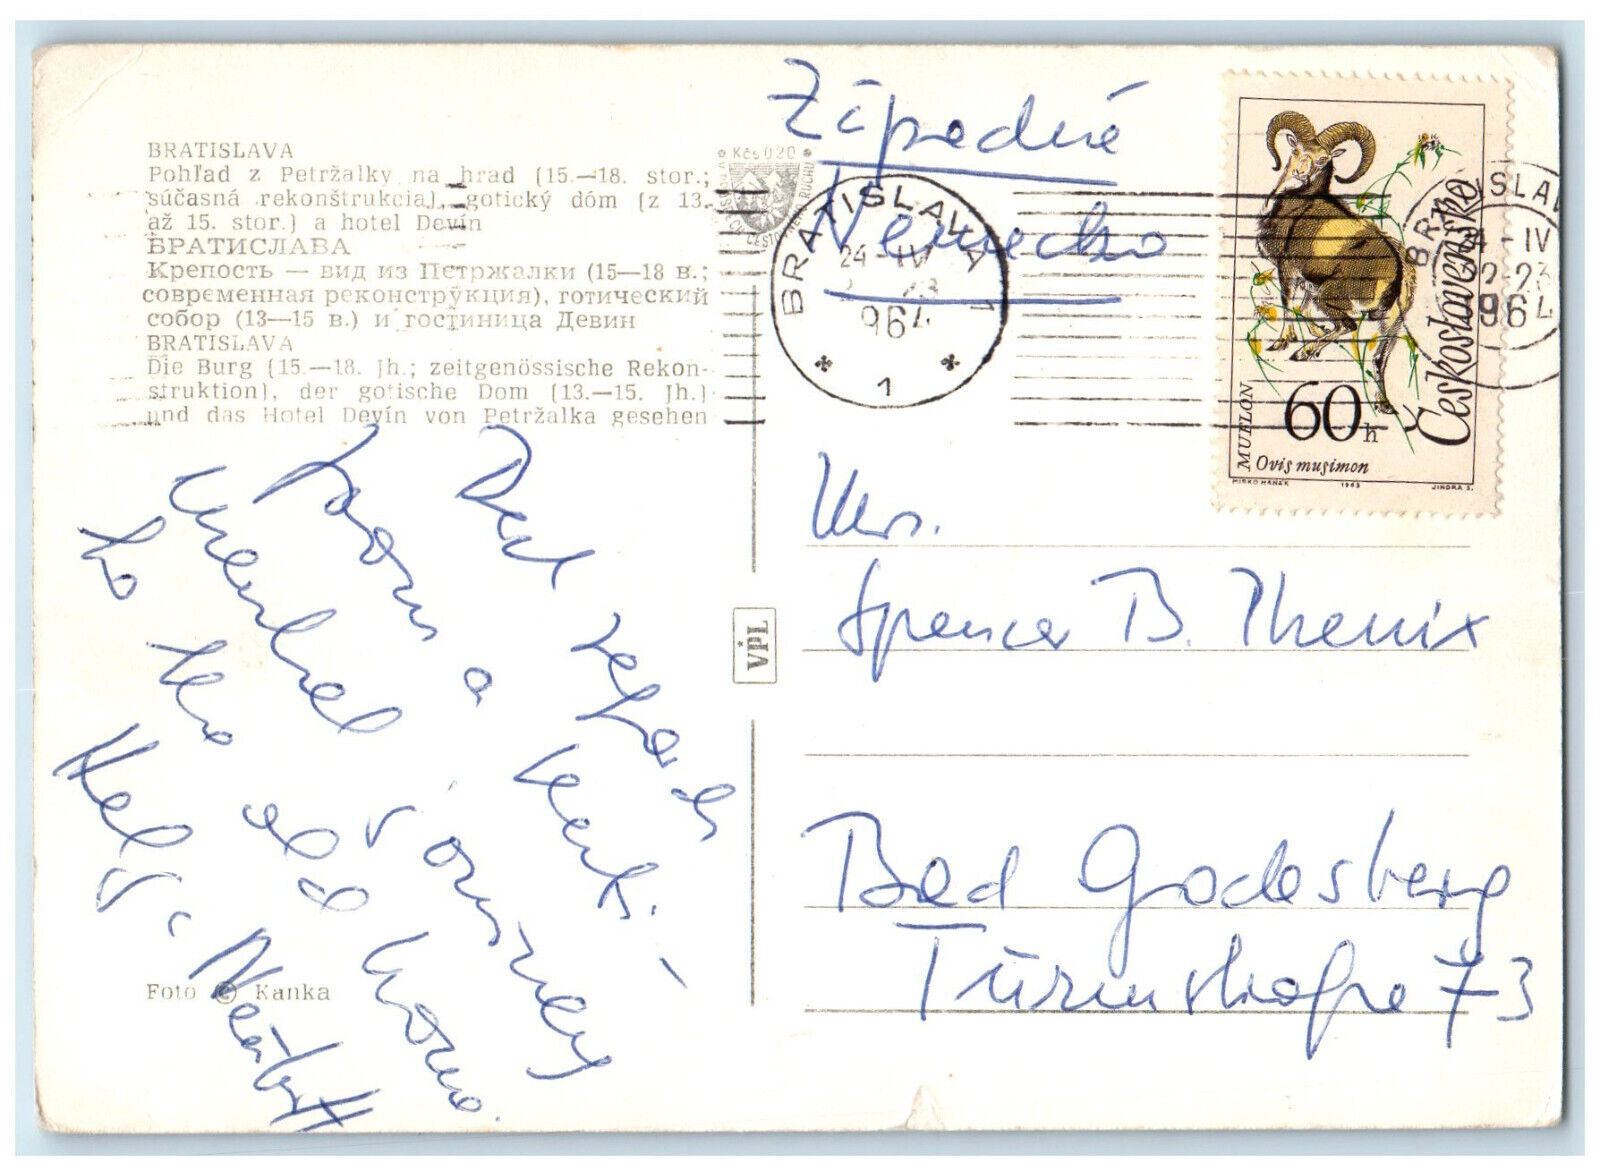 BRATISLAVA
Pohľad z Petržalky na hrad (15.—18. stor.;
súčasná rekonštrukcia), gotický dóm (z 13.
až 15. stor.) a hotel Devín
БРАТИСЛАВА
Крепость — вид из Петржалки (15—18 в.;
современная реконструкция), готический
собор (13—15 в.) и гостиница Девин
BRATISLAVA
Die Burg (15.—18. Jh.; zeitgenössische Rekon-
struktion), der gotische Dom (13.—15. Jh.)
und das Hotel Devín von Petržalka gesehen
Best regards
from a
to
old home.
Foto © Kanka
VPL
Kčs 0.20
Západné
Nemecko
BRATISLAVA 1
24-IV
964
1
Československo
MUFLON
60 h
Ovis musimon
MIRKO HANÁK 1963 JINDRA S.
SLAV
4-IV
2-23
964
Mrs.
Spencer B. Phenix
Bad Godesberg
Turmstraße 73